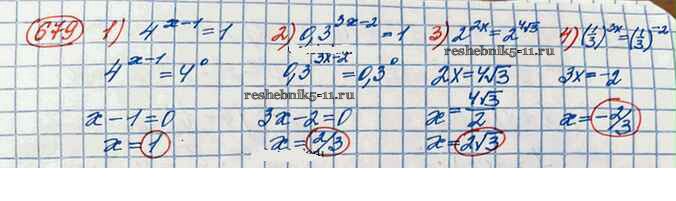 679 1) 4^{x-1} = 1
4^{x-1} = 4^0
x - 1 = 0
x = 1
2) 0,3^{3x-2} = 1
0,3^{3x-2} = 0,3^0
reshebnik5-11.ru
3x - 2 = 0
x = 2/3
3) 2^{2x} = 2^{4√3}
reshebnik5-11.ru
2x = 4√3
x = 4√3/2
x = 2√3
4) (1/3)^{3x} = (1/3)^{-2}
3x = -2
x = -2/3